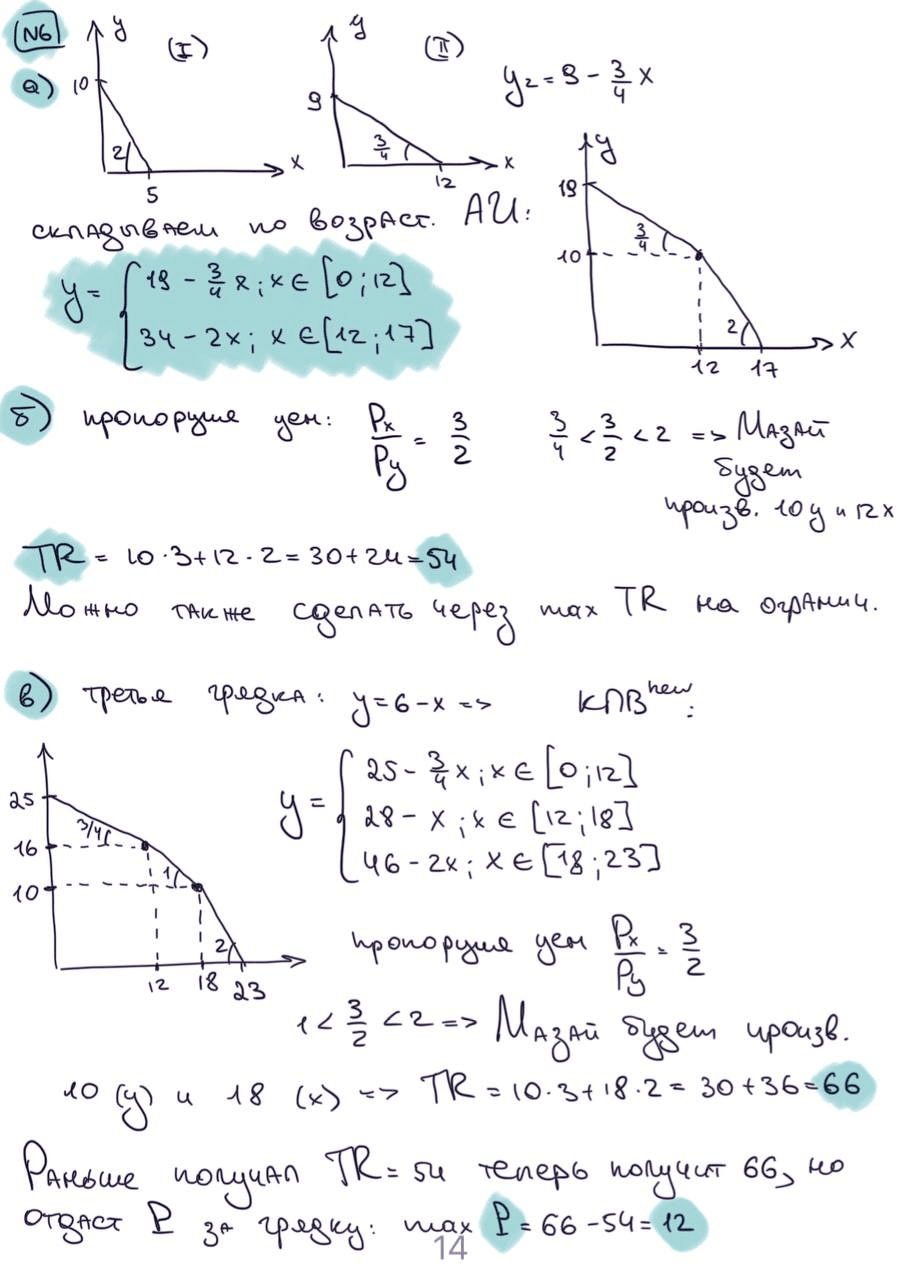 N6
y (I) y (II) y₂ = 9 - 3/4 x
а) 10 2 5 x
9 3/4 12 x
складываем по возраст. АИ:
y 19 3/4 10 2 12 17 x
y = { 19 - 3/4 x; x ∈ [0;12]
34 - 2x; x ∈ [12;17]
б) пропорция цен: Px/Py = 3/2 3/4 < 3/2 < 2 => Мазай
будет
произв. 10y и 12x
TR = 10·3+12·2=30+24=54
Можно также сделать через max TR на огранич.
в) третья грядка: y=6-x => КПВ^new:
25 16 10 3/4 1 2 12 18 23
y = { 25 - 3/4 x; x ∈ [0;12]
28 - x; x ∈ [12;18]
46 - 2x; x ∈ [18;23]
пропорция цен Px/Py = 3/2
1 < 3/2 < 2 => Мазай будет произв.
10 (y) и 18 (x) => TR = 10·3+18·2 = 30+36=66
Раньше получал TR=54 теперь получит 66, но
отдаст P за грядку: max P = 66-54=12
14